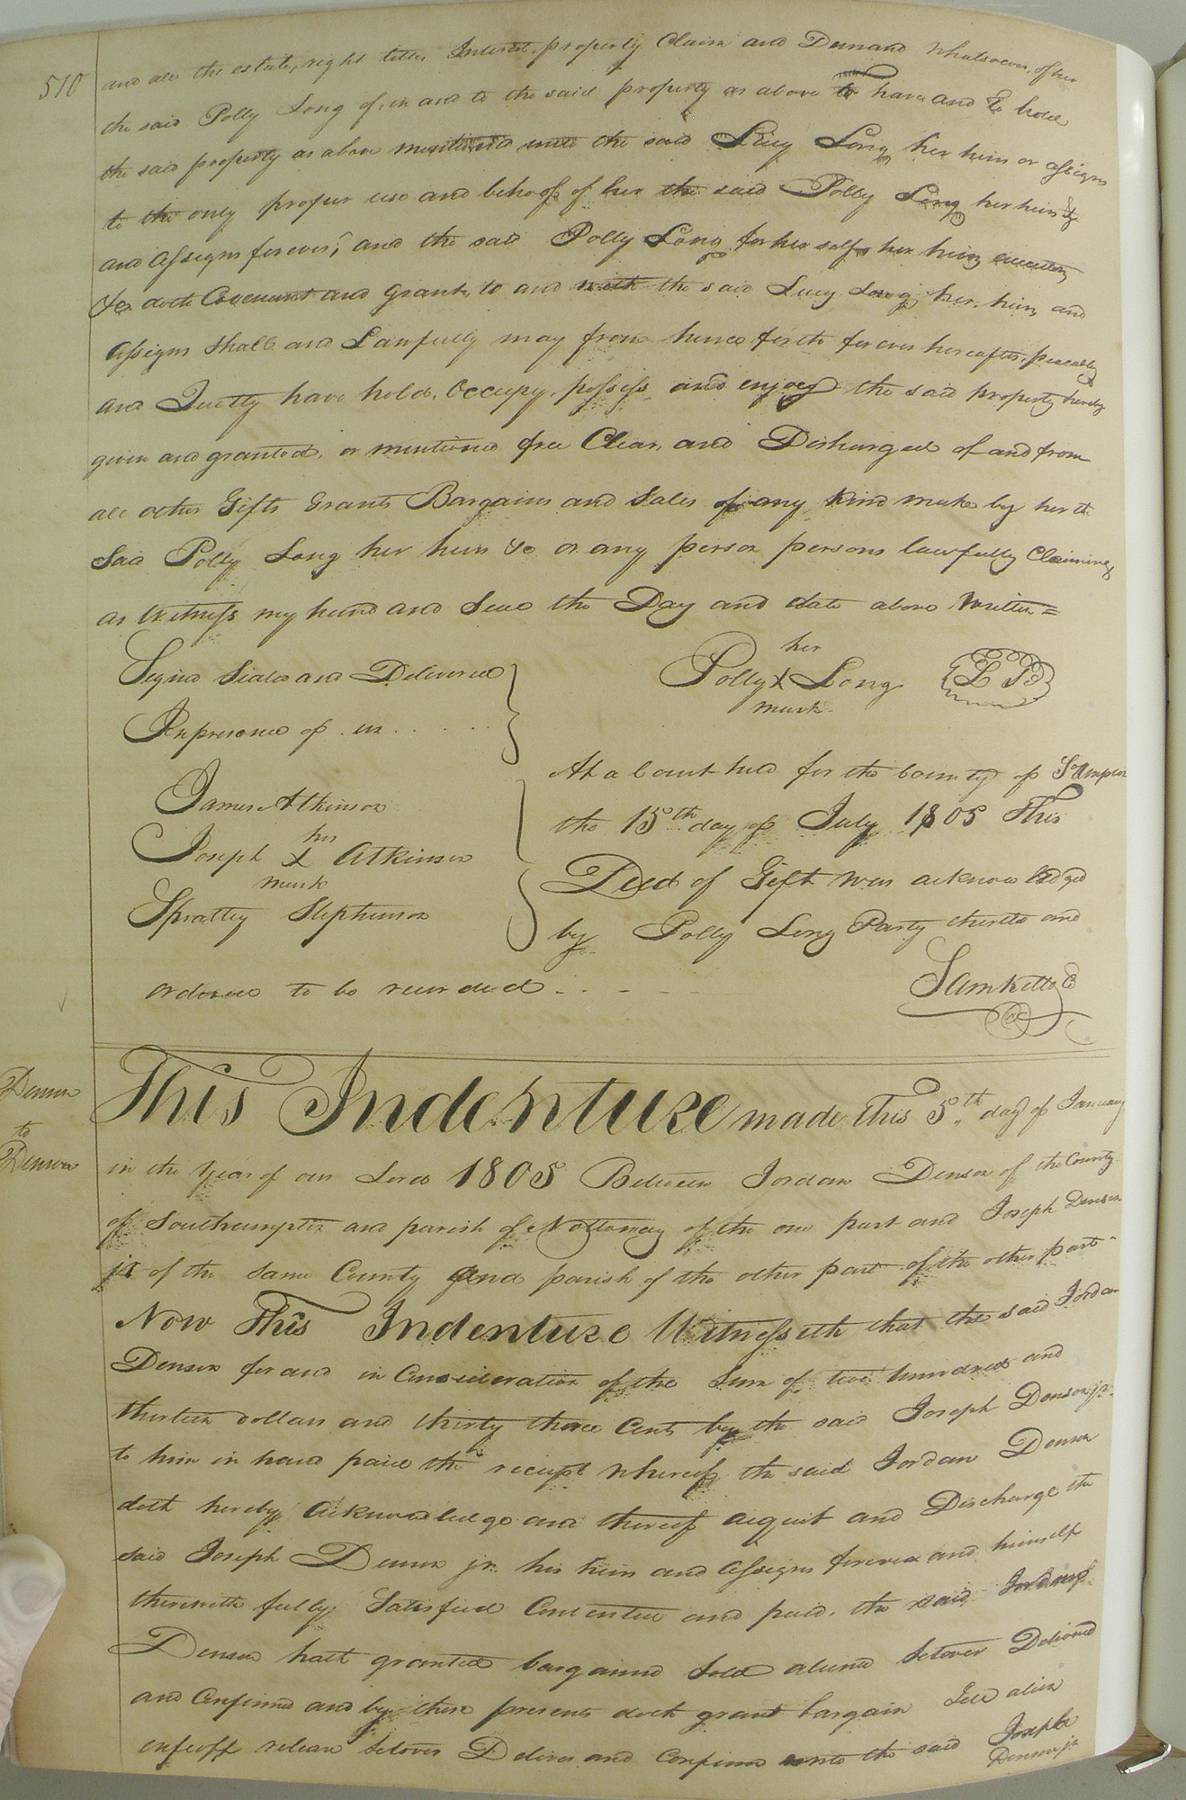 510
and all the estate, right title, Interest, property Claim and Demand whatsoever, of her
the said Polly Long of, in and to the said property as above to have and To hold
the said property as above mentioned unto the said Lucy Long her heirs or assigns
to the only proper use and behoof of her the said Polly Long her heirs &c
and assigns forever, and the said Polly Long for her self her heirs executors
&c doth Covenant and grant, to and with the said Lucy Long her, heirs, and
assigns shall and Lawfully may from hence forth forever hereafter, peaceably
and Quietly have hold, Occupy, possess, and enjoy the said property hereby
given and granted, or mentioned free Clear, and Discharged of and from
all other Gifts Grants Bargains and Sales of any Kind make by her th
Said Polly Long her heirs &c or any person persons lawfully Claiming
as Witness my hand and Seal the Day and date above Written =
Signed Sealed and Delivered
In presence of us . . . .
her
Polly X Long
mark
James Atkinson
his
Joseph X Atkinson
mark
Spratley Stephenson
At a Court held for the County of
the 15th day of July 1805 This
Deed of Gift was acknowledged
by Polly Long Party thereto and
ordered to be recorded . . - -
Saml Kello C
Denson
to
Denson
This Indenture made this 5th day of January
in the Year of our Lord 1805 Between Jordan Denson of the County
of Southampton and parish of Nottoway of the one part and Joseph Denson
jr of the same County and parish of the other part of the other part
Now This Indenture Witnesseth that the said Jordan
Denson for and in Consideration of the Sum of two hundred and
thirteen dollars and thirty three Cents by the said Joseph Denson jr.
to him in hand paid the receipt whereof the said Jordan Denson
doth hereby acknowledge and thereof acquit and Discharge the
said Joseph Denson jr. his heirs and assigns forever and himself
therewith fully Satisfied Contented and paid, the said Jordan
Denson hath granted bargained Sold aliend Setover Delivered
and Confirmed and by these presents doth grant bargain Sell alien
enfeoff release setover Deliver and Confirm unto the said Joseph
Denson jr